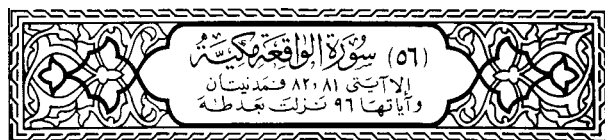 (٥٦) سورة الواقعة مكية
إلا آيتى ٨١ ، ٨٢ فمدنيتان
وآياتها ٩٦ نزلت بعد طه